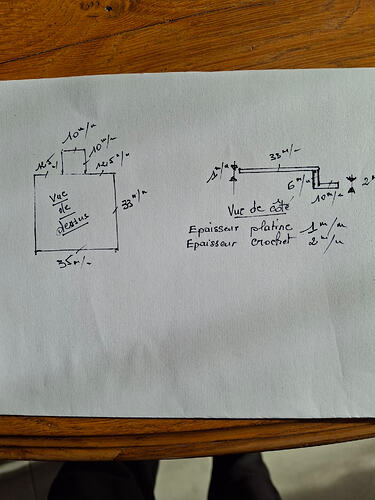 10 m/m
10 m/m
12,5 m/m
33 m/m
Vue
de
dessus
35 m/m
33 m/m
1 m/m
6 m/m
10 m/m
2
Vue de côté
Epaisseur platine 1 m/m
Epaisseur crochet 2 m/m